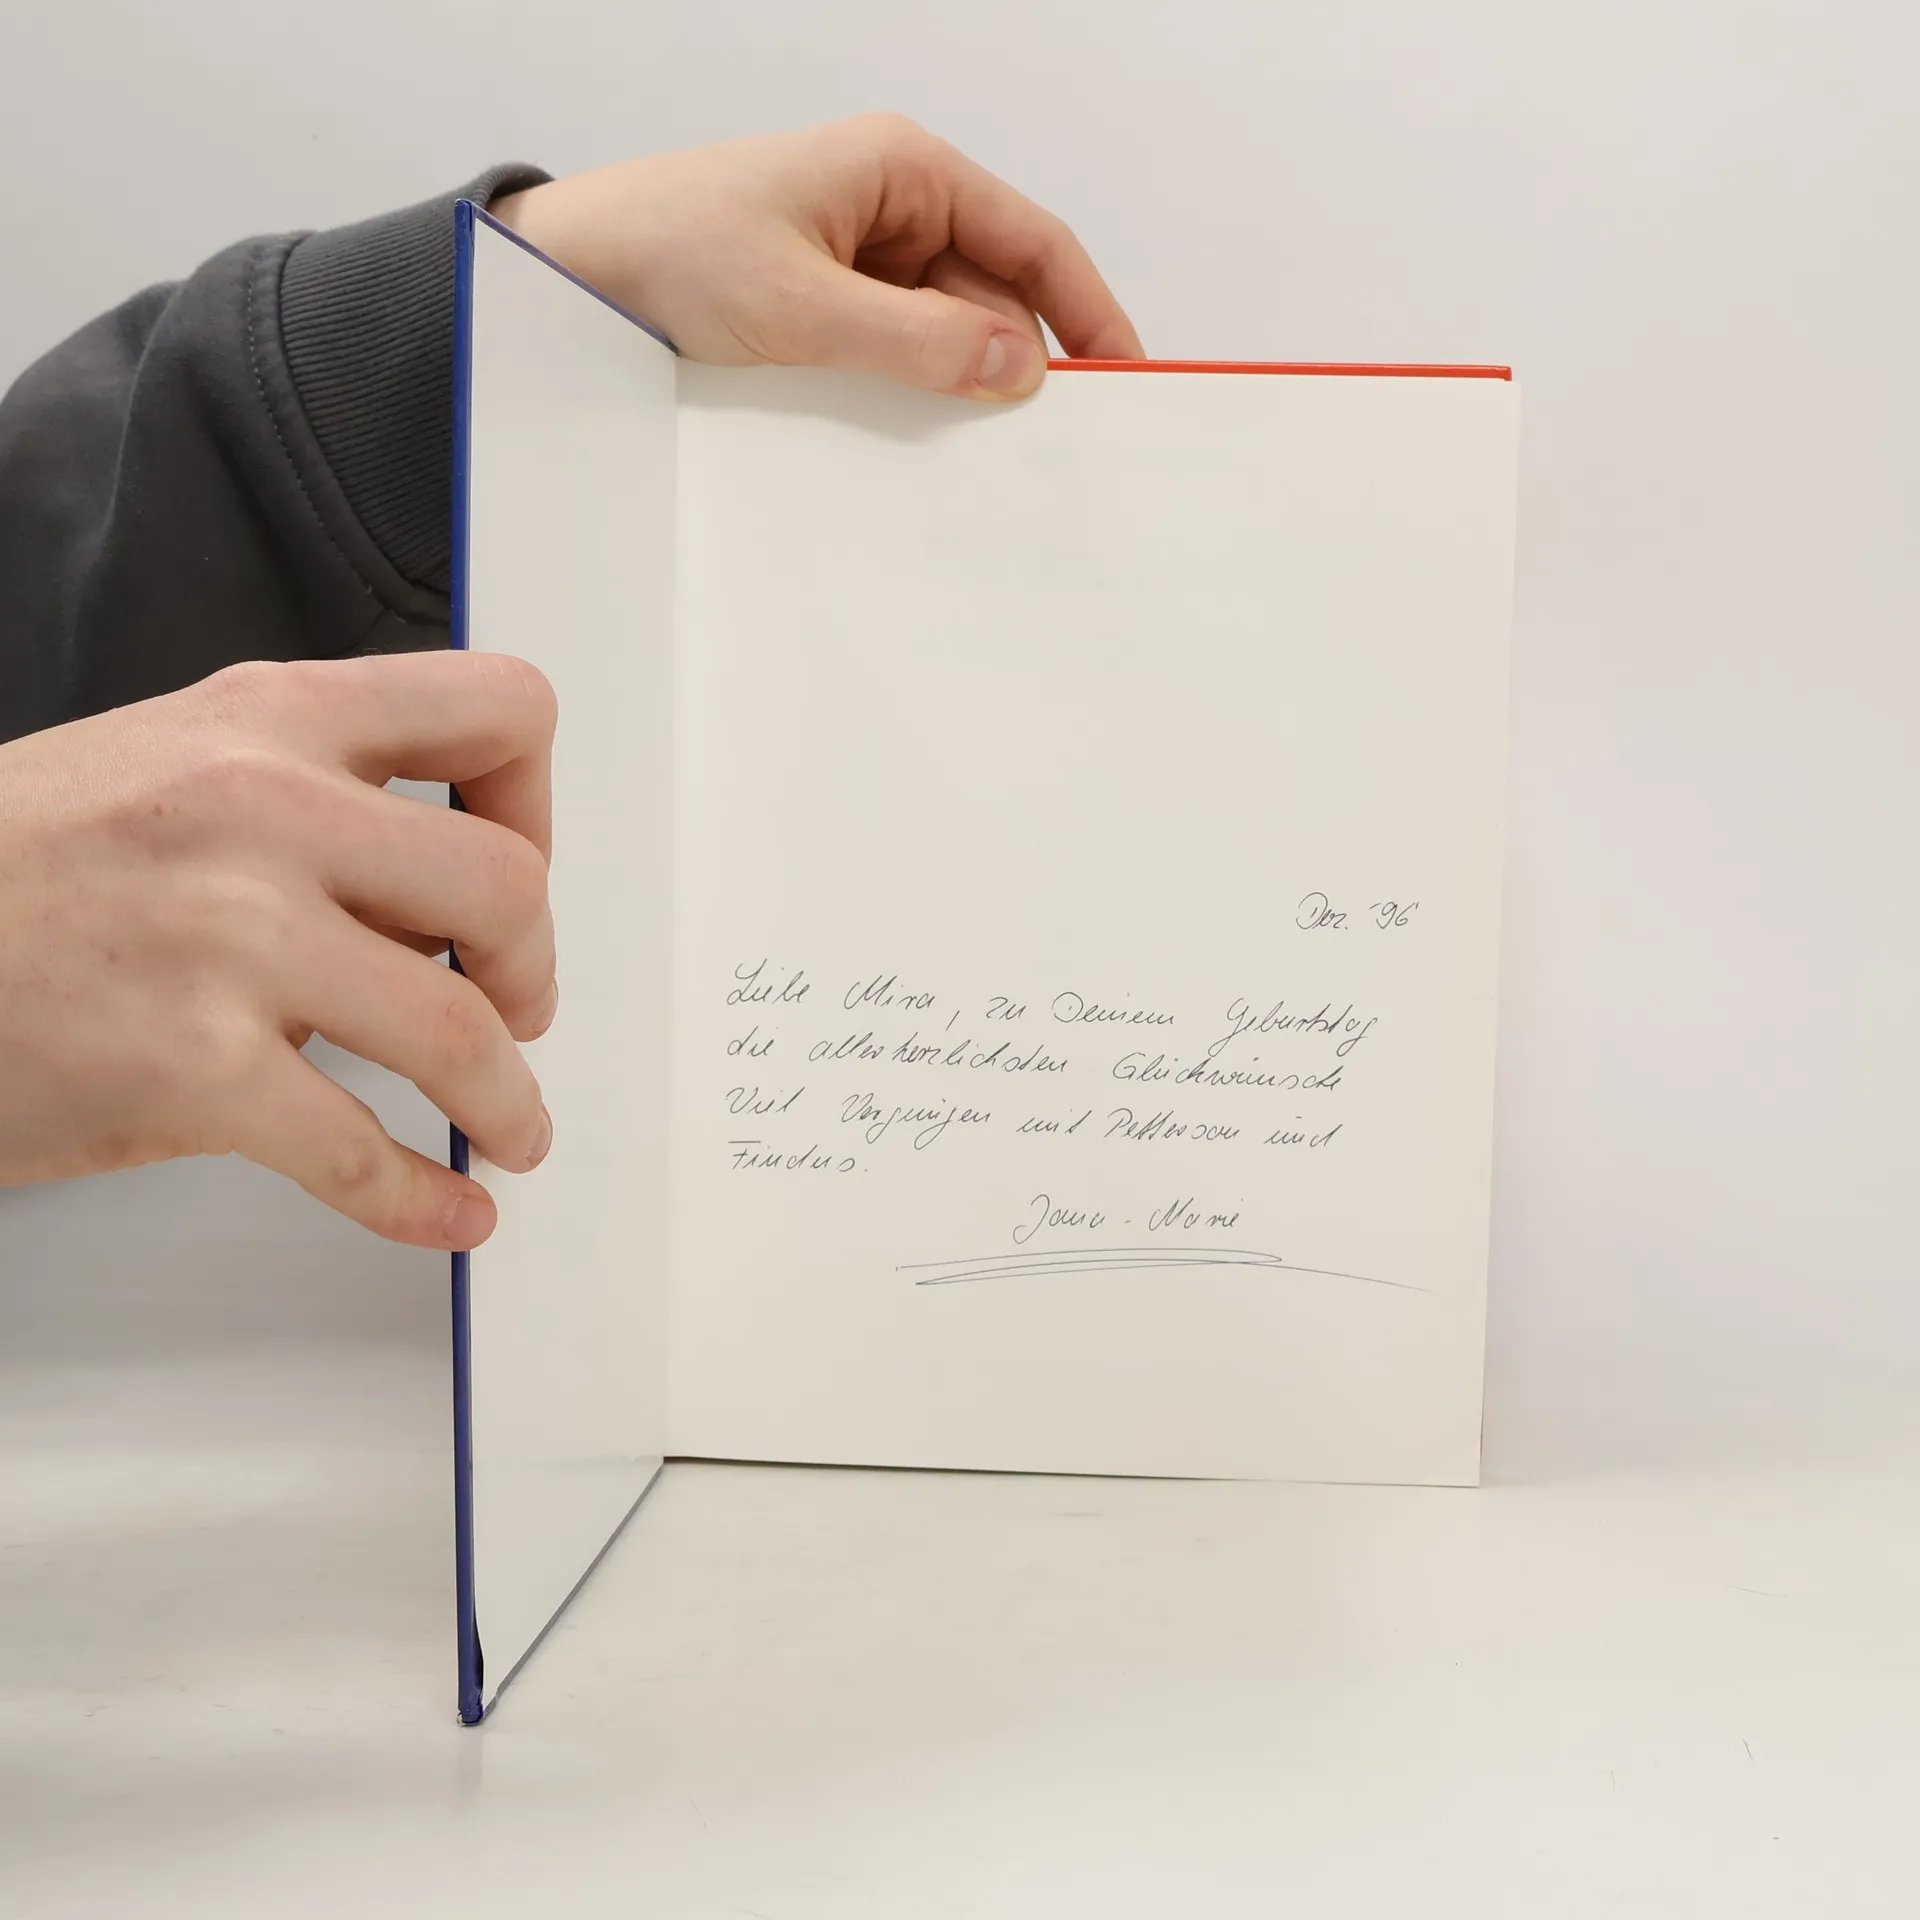 Dez. '96'
Liebe Mira, zu Deinem Geburtstag
die allerherzlichsten Glückwünsche
Viel Vergnügen mit Petterson und
Findus.
Jana - Marie